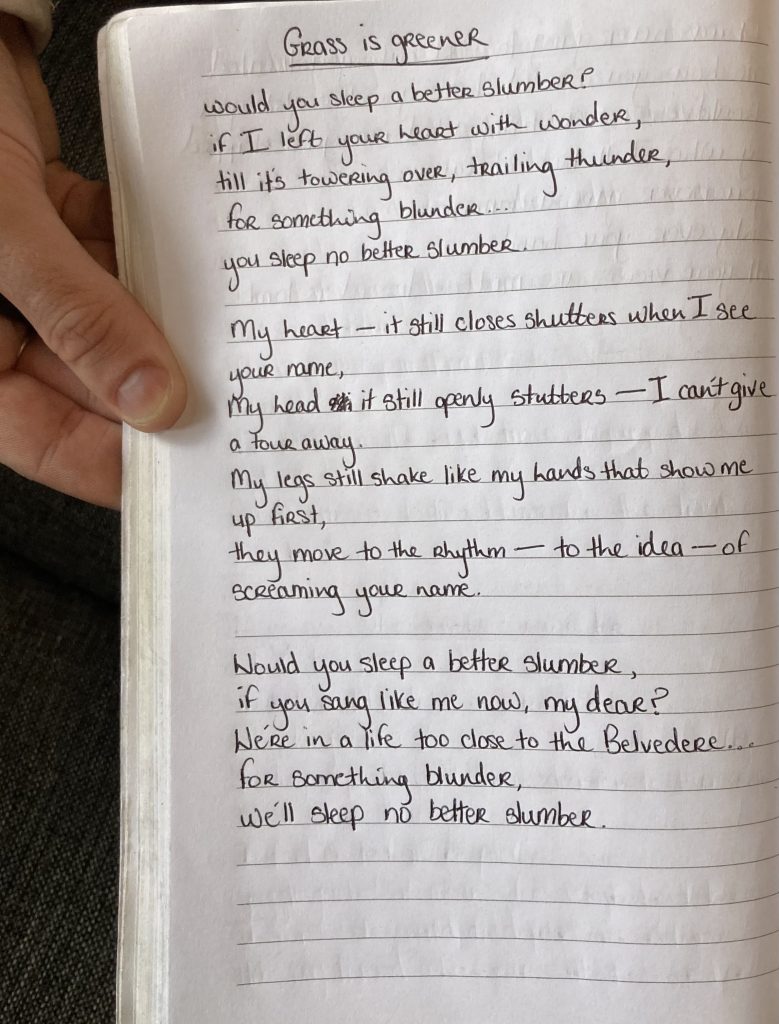 Grass is greener
would you sleep a better slumber?
if I left your heart with wonder,
till it's towering over, trailing thunder,
for something blunder...
you sleep no better slumber.
My heart – it still closes shutters when I see
your name,
My head it still openly stutters – I can't give
a tour away.
My legs still shake like my hands that show me
up first,
they move to the rhythm – to the idea – of
screaming your name.
Would you sleep a better slumber,
if you sang like me now, my dear?
We're in a life too close to the Belvedere...
for something blunder,
we'll sleep no better slumber.